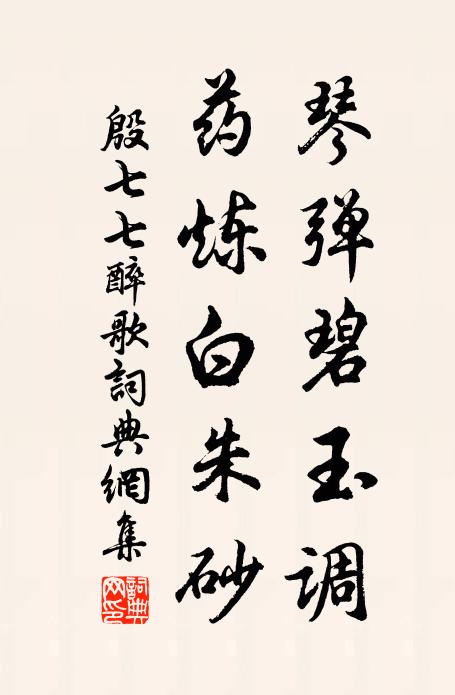 琴弹碧玉调
药炼白朱砂
殷七七醉歌詞典網集
詞典網印